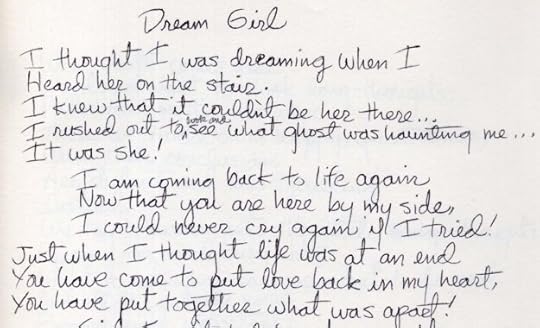 Dream Girl
I thought I was dreaming when I
Heard her on the stair.
I knew that it couldn't be her there...
I rushed out to look and see what ghost was haunting me...
It was she!
I am coming back to life again
Now that you are here by my side,
I could never cry again if I tried!
Just when I thought life was at an end
You have come to put love back in my heart,
You have put together what was apart!